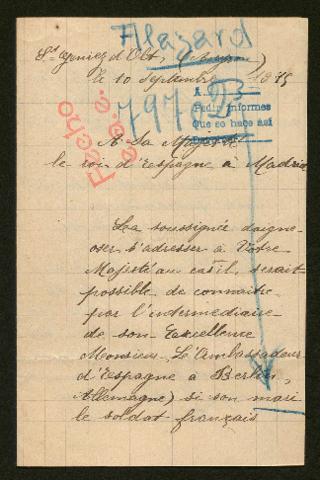 Alazard
St Geniez d'Olt, (Aveyron)
le 10 Septembre 1915
7978
B
A.
Pedir informes
Que se hace así
Fecho
A Sa Majesté
le roi d'Espagne à Madrid
La soussignée daigne
oser s'adresser à Votre
Majesté au cas il, serait
possible de connaitre
par l'intermédiaire
de son Excellence
Monsieur L'Ambassadeur
d'Espagne à Berlin,
Allemagne) si son mari
le soldat français